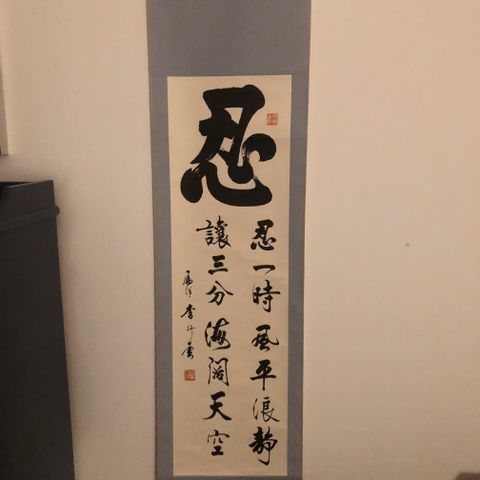 忍
忍一時風平浪静
讓三分海阔天空